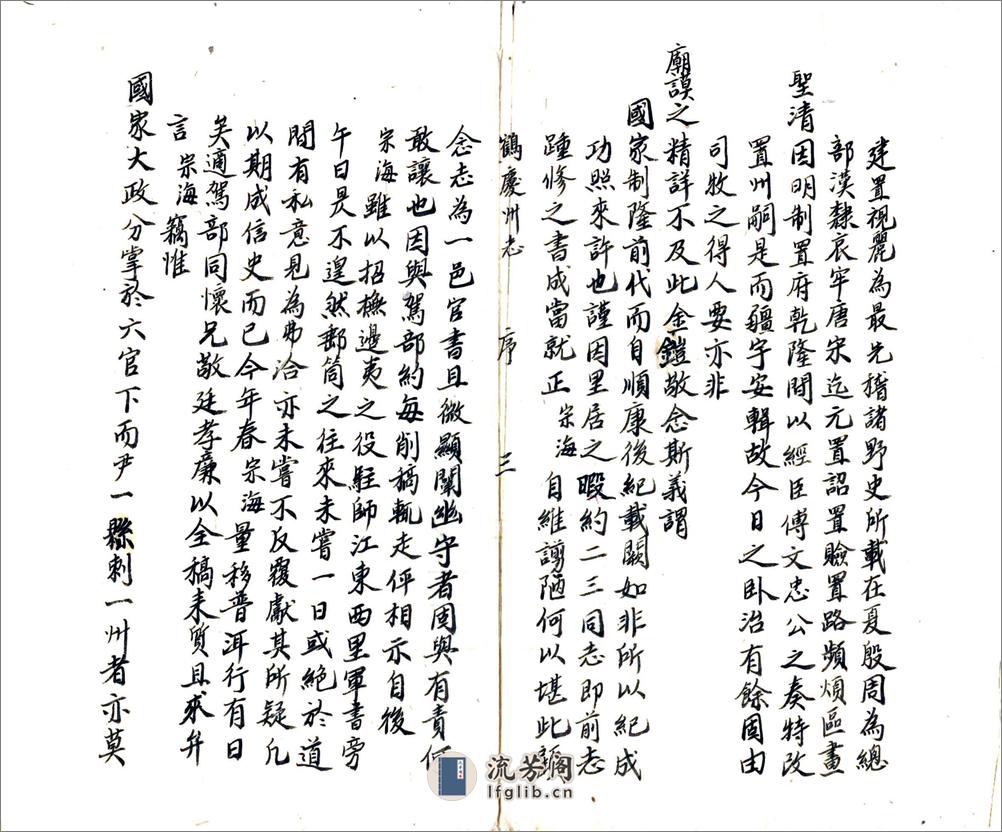 建置視麗為最先稽諸野史所載在夏殷周為總
部漢隸哀牢唐宋迄元置詔置瞼置路頻煩區畫
聖清因明制置府乾隆間以經臣傅文忠公之奏特改
置州嗣是而疆宇安輯故今日之卧治有餘固由
司牧之得人要亦非
廟謨之精詳不及此金鎧敬念斯義謂
國家制隆前代而自順康後紀載闕如非所以紀成
功照來許也謹因里居之暇約二三同志即前志
踵修之書成當就正宗海自維謭陋何以堪此顧
鶴慶州志 序 三
念志為一邑官書且微顯闡幽守者固與有責何
敢讓也因與駕部約每削稿輒走伻相示自後
宗海雖以招撫邊夷之役駐師江東西里軍書旁
午日昃不遑然郵筒之往來未嘗一日或絕於道
間有私意見為弗洽亦未嘗不反覆獻其所疑凡
以期成信史而已今年春宗海量移普洱行有日
矣適駕部同懷兄敬廷孝廉以全稿來質且求弁
言宗海竊惟
國家大政分掌於六官下而尹一縣刺一州者亦莫
流芳阁
lfglib.cn